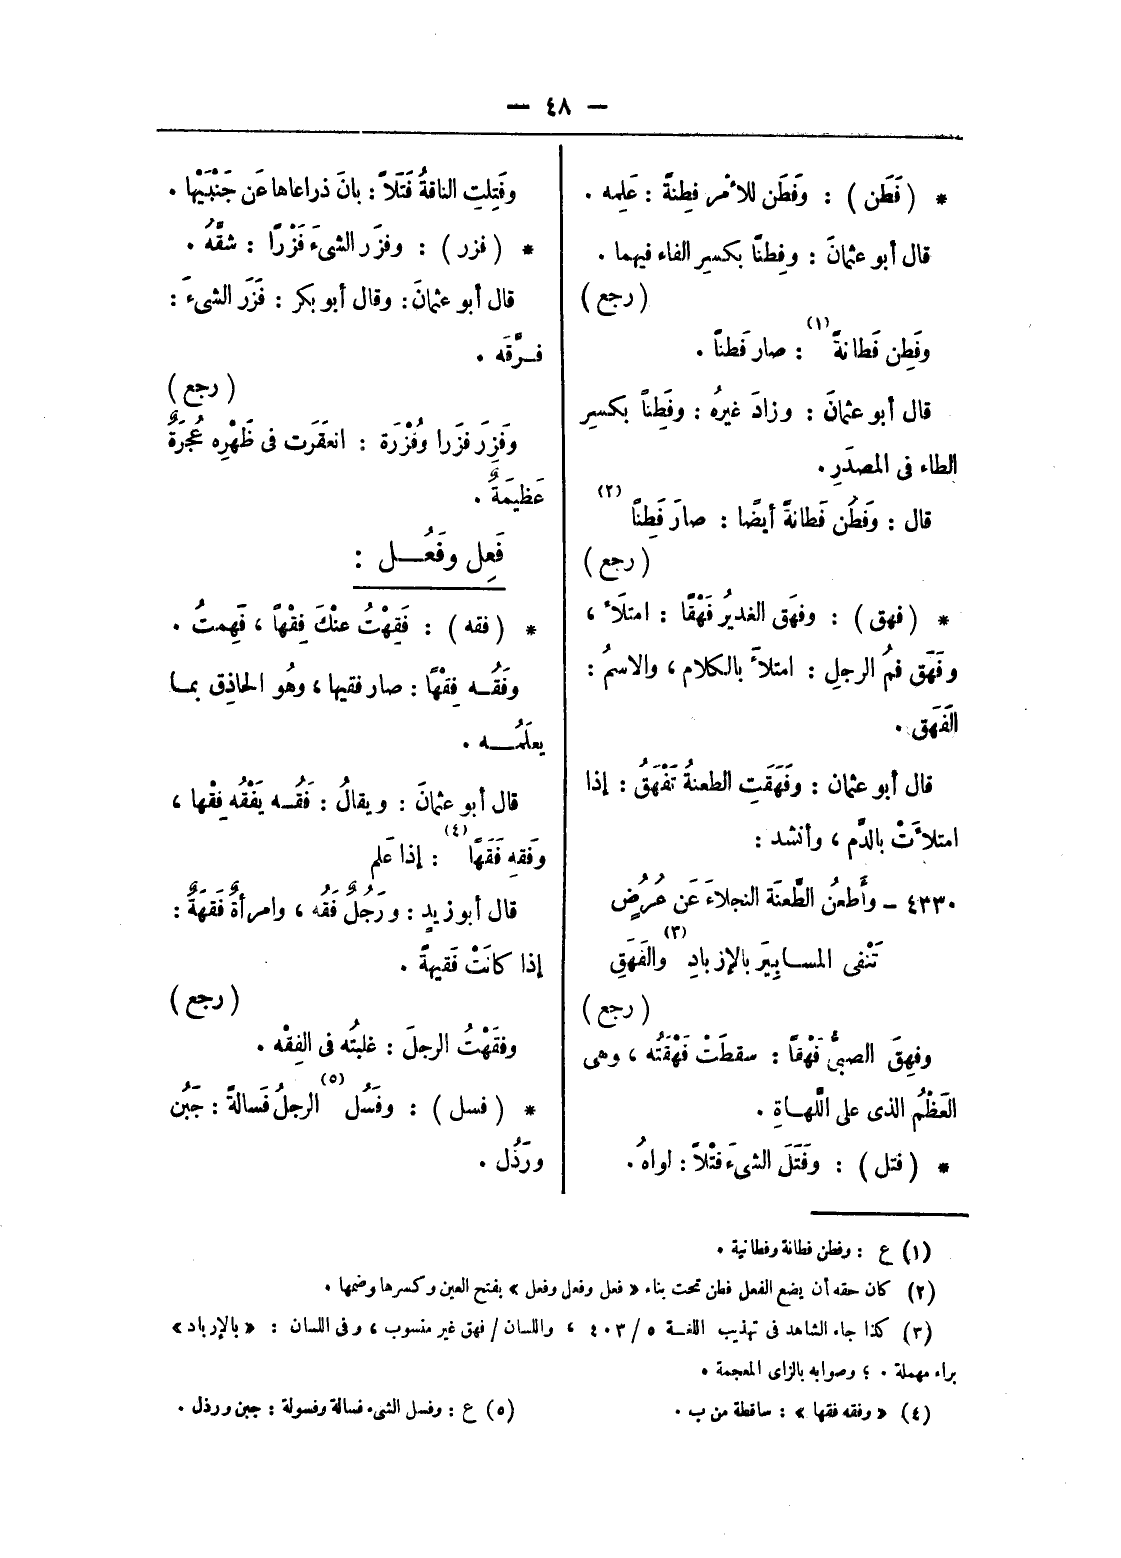 — ٤٨ —
* ( فَطَن ) : وفَطَن للأمْر فِطنةً : عَلِمه .
قال أبو عثمانَ : وفِطنًا بكسرِ الفاء فيهما .
( رجع )
وفَطِن فَطانةً (١) : صار فَطنًا .
قال أبو عثمانَ : وزادَ غيرهُ : وفَطِناً بكسرِ
الطاء فى المصدَرِ .
قال : وفَطُن فَطانةً أيضًا : صارَ فَطِنًا (٢)
( رجع )
* ( فهق ) : وفهَق الغديرُ فَهْقًا : امتلَأ ،
وفَهَق فمُ الرجلِ : امتلأَ بالكلام ، والاسمُ :
الفَهَق .
قال أبو عثمان : وفَهَقَتِ الطعنةُ تَفْهَقُ : إذا
امتلأَتْ بالدَّم ، وأنشد :
٤٣٣٠ – وأَطعُنُ الطَّعنَة النجلاءَ عَن عُرُضٍ
تَنْفى المسابِيَر بالإزبادِ (٣) والفَهَقِ
( رجع )
وفهِقَ الصبىُّ فَهْقاً : سقطَتْ فَهْقَتُه ، وهى
العَظْمُ الذى على اللَّهاةِ .
* ( فتل ) : وفَتَلَ الشىءَ فتْلاً : لواهُ .
وفَتِلتِ الناقةُ فَتَلاً : بانَ ذراعاها عَن جَنْبَيْها .
* ( فزر ) : وفزَر الشىءَ فَزْرًا : شقَّهُ .
قال أبو عثمانَ : وقال أبو بكر : فَزَر الشىءَ :
فرَّقَه .
( رجع )
وفَزِرَ فزَرا وفُزْرَة : انعقَرَت فى ظَهْرِه عُجرَةٌ
عَظيمَةٌ .
فَعِل وفَعُل :
* ( فقه ) : فَقِهْتُ عنْكَ فِقْهاً ، فَهِمتُ .
وفَقُه فِقْهًا : صار فقيها ، وهُو الحاذِق بما
يعلَمُه .
قال أبو عثمانَ : ويقالُ : فَقُه يَفْقُه فِقْها ،
وفَقِه فَقَهًا (٤) : إذا عَلم
قال أبو زيدٍ : ورَجُلٌ فَقُه ، وامرأةٌ فَقهَةٌ :
إذا كانَتْ فَقيهةً .
( رجع )
وفقَهْتُ الرجلَ : غلبتُه فى الفِقْه .
* ( فسل ) : وفَسُل (٥) الرجلُ فَسالةً : جَبُن
ورَذُل .
(١) ع : وفطن فطانة وفطانية .
(٢) كان حقه أن يضع الفعل فطن تحت بناء « فعل وفعل وفعل » بفتح العين وكسرها وضمها .
(٣) كذا جاء الشاهد فى تهذيب اللغة ٥/٤٠٣ ، واللسان / فهق غير منسوب ، وفى اللسان : « بالإرباد »
براء مهملة . ؛ وصوابه بالزاى المعجمة .
(٤) « وفقه فقها » : ساقطة من ب .
(٥) ع : وفسل الشىء فسالة وفسولة : جبن ورذل .